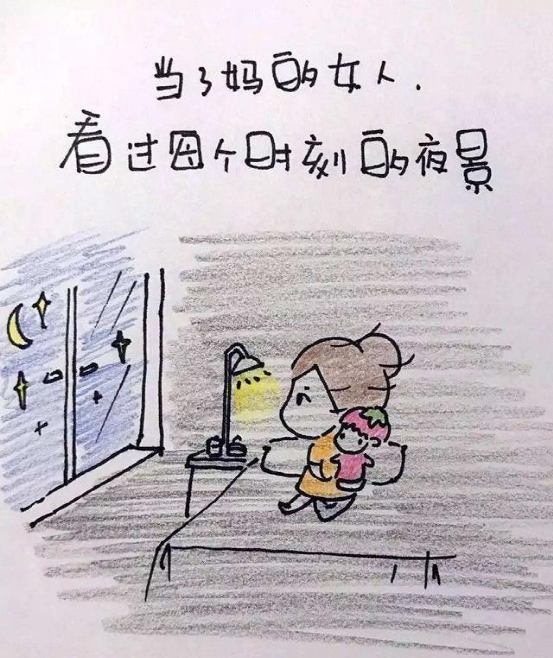 当了妈的女人.
看过四个时刻的夜景